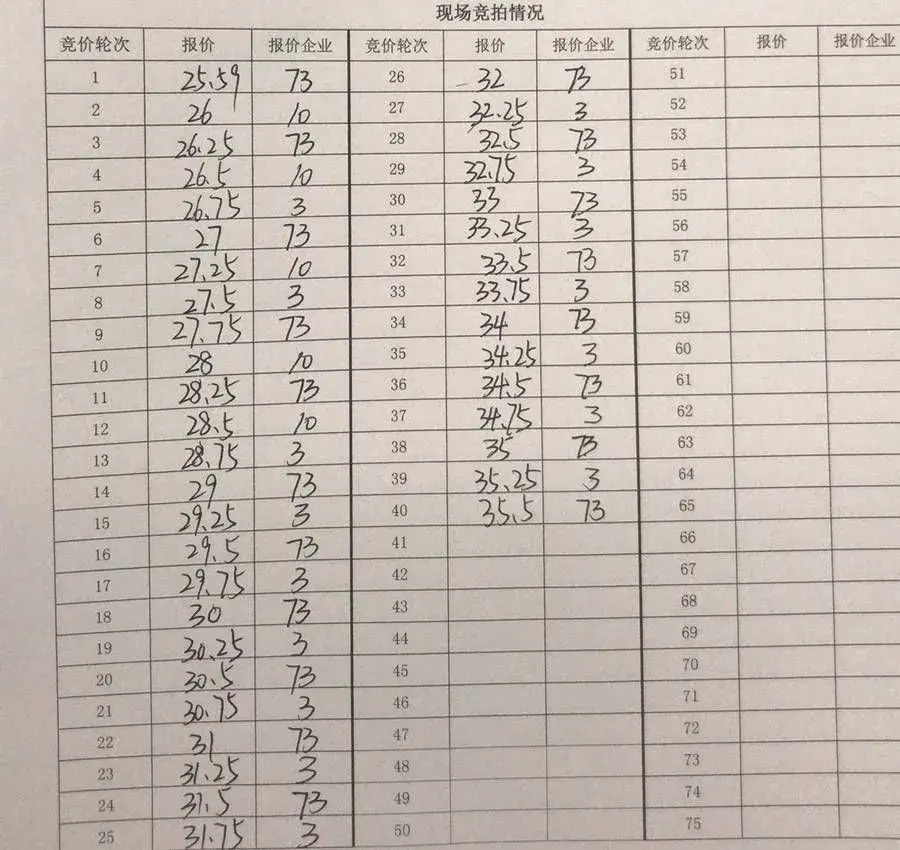 现场竞拍情况
竞价轮次 报价 报价企业 竞价轮次 报价 报价企业 竞价轮次 报价 报价企业
1 25.59 73 26 32 73 51
2 26 10 27 32.25 3 52
3 26.25 73 28 32.5 73 53
4 26.5 10 29 32.75 3 54
5 26.75 3 30 33 73 55
6 27 73 31 33.25 3 56
7 27.25 10 32 33.5 73 57
8 27.5 3 33 33.75 3 58
9 27.75 73 34 34 73 59
10 28 10 35 34.25 3 60
11 28.25 73 36 34.5 73 61
12 28.5 10 37 34.75 3 62
13 28.75 3 38 35 73 63
14 29 73 39 35.25 3 64
15 29.25 3 40 35.5 73 65
16 29.5 73 41 66
17 29.75 3 42 67
18 30 73 43 68
19 30.25 3 44 69
20 30.5 73 45 70
21 30.75 3 46 71
22 31 73 47 72
23 31.25 3 48 73
24 31.5 73 49 74
25 31.75 3 50 75